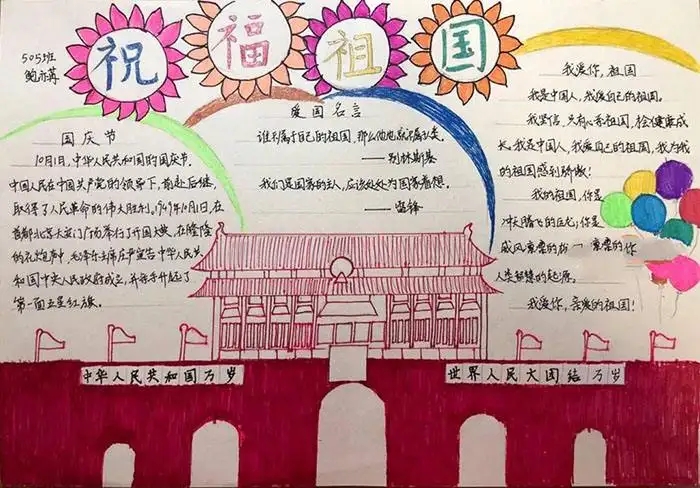 505班
鲍亦苒
祝福祖国
国庆节
10月1日,中华人民共和国的国庆节.
中国人民在中国共产党的领导下,前赴后继,
取得了人民革命的伟大胜利。1949年10月1日,在
首都北京天安门广场举行了开国大典,在隆隆
的礼炮声中,毛泽东主席庄严宣告中华人民共
和国中央人民政府成立,并亲手升起了
第一面五星红旗。
爱国名言
谁不属于自己的祖国,那么他也就不属人类。
——别林斯基
我们是国家的主人,应该处处为国家着想。
——雷锋
我爱你,祖国
我是中国人,我爱自己的祖国。
我坚信,只有心系祖国,
健康成
长,我是中国人,我爱自己的祖国,我为我
的祖国感到骄傲!
我的祖国,你是
冲天腾飞的巨龙;你是
威风凛凛的
的你
人类智慧的起源。
我爱你,亲爱的祖国!
中华人民共和国万岁
世界人民大团结万岁